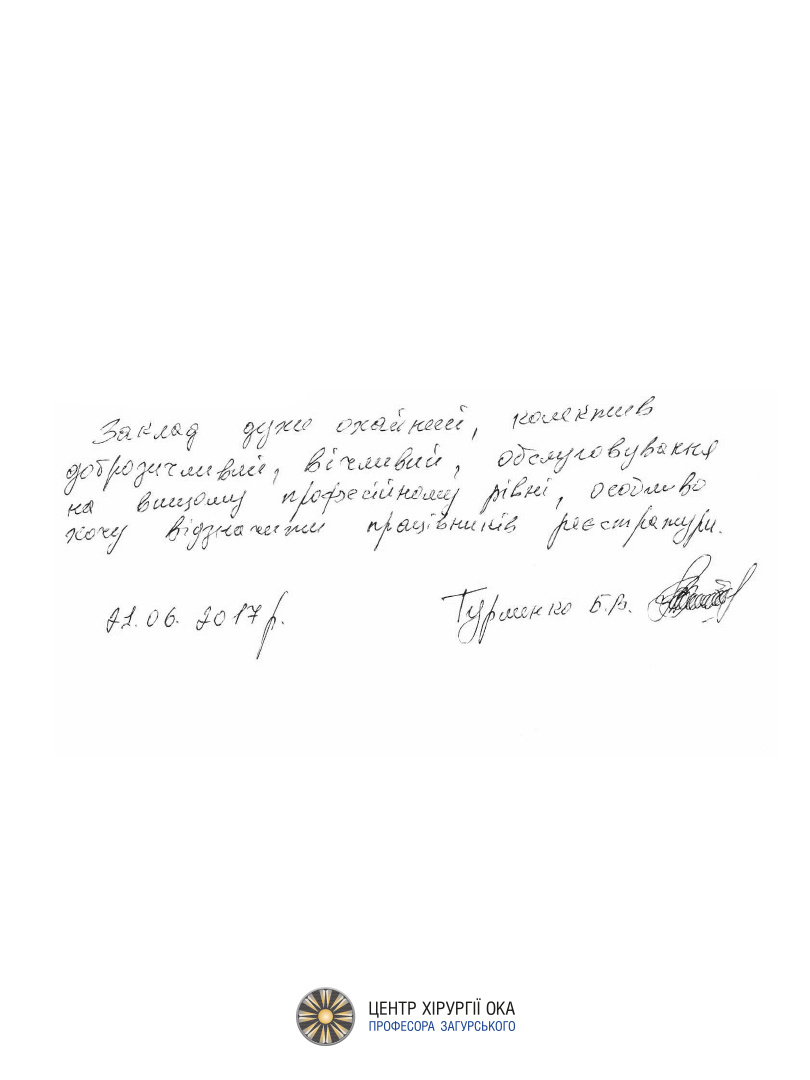 Заклад дуже охайний, колектив
доброзичливий, вічливий, обслуговування
на вищому професійному рівні, особливо
хочу відзначити працівників реєстратури.
21.06.2017 р. Турменко Б.В.
ЦЕНТР ХІРУРГІЇ ОКА
ПРОФЕСОРА ЗАГУРСЬКОГО